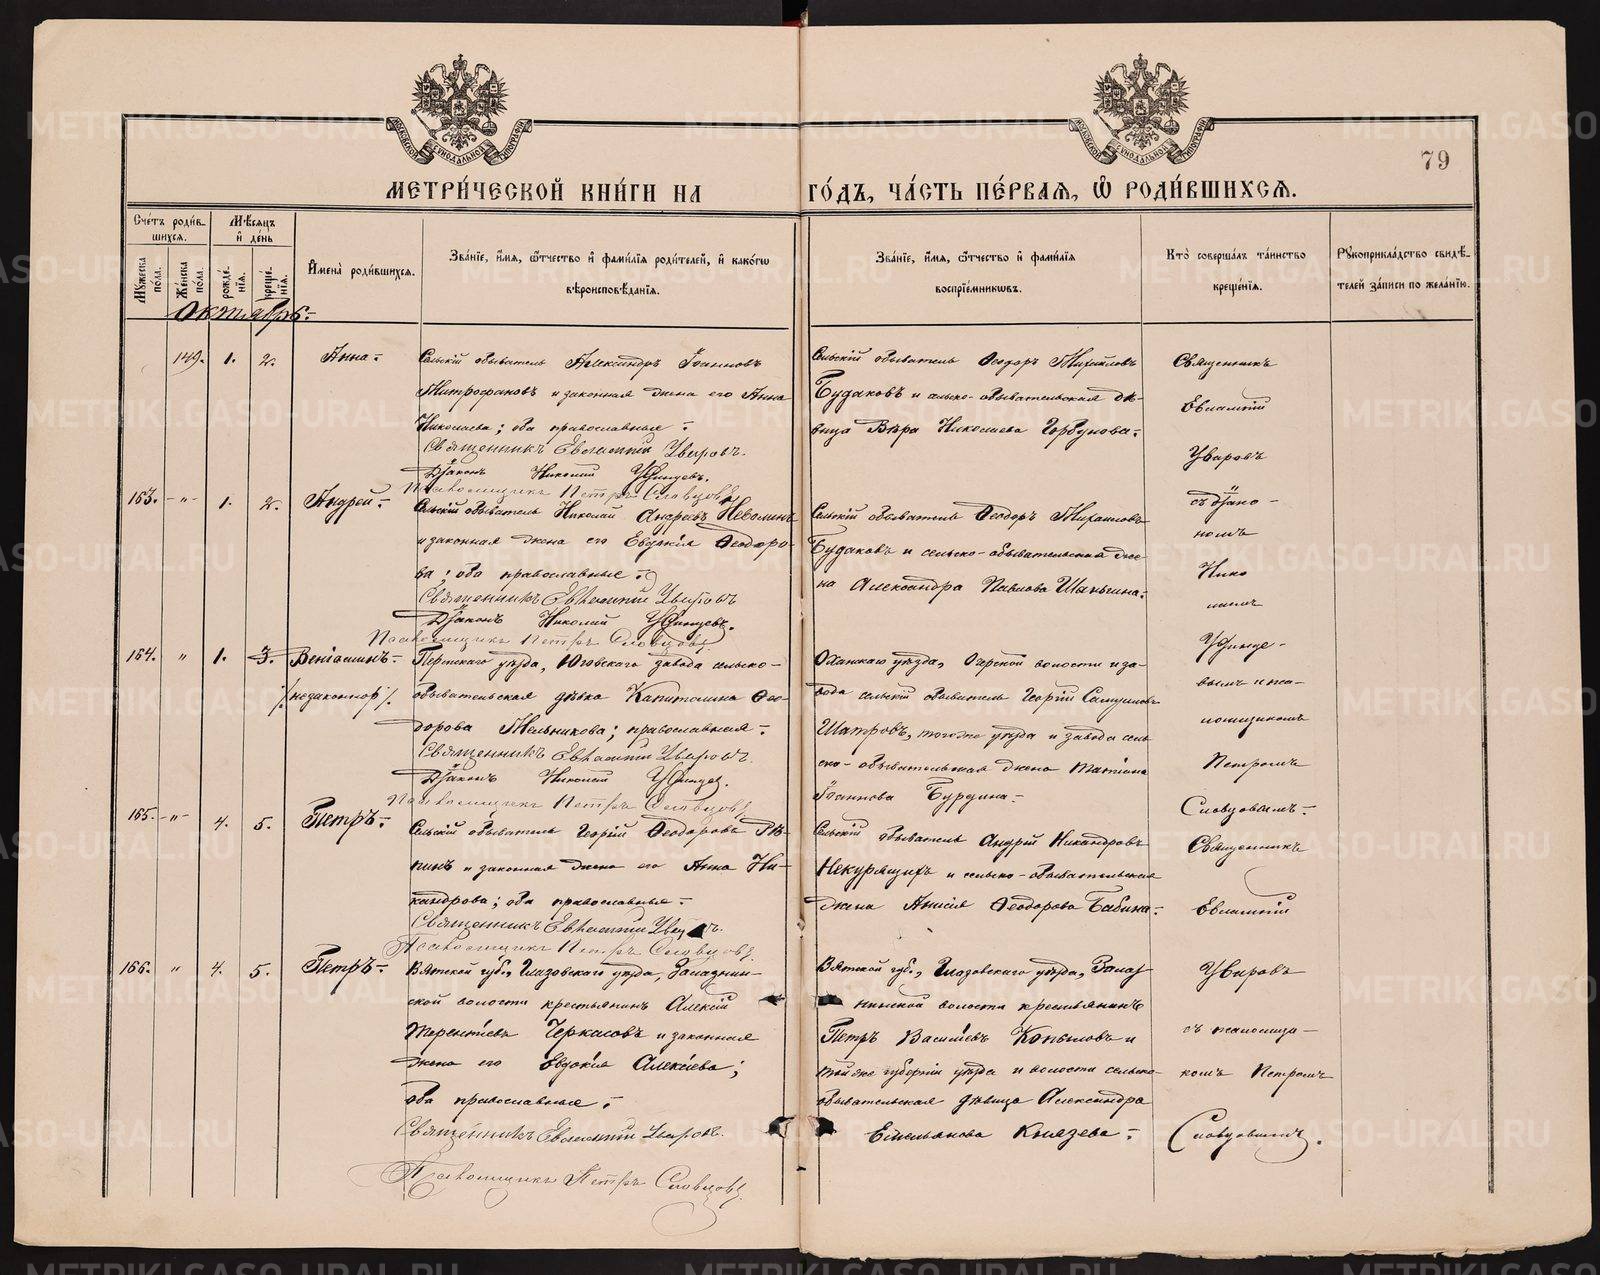 79
МЕТРИ́ЧЕСКОЙ КНИ́ГИ НА ГО́ДЪ, ЧА́СТЬ ПЕ́РВАЯ, Ѡ РОДИ́ВШИХСЯ.
Сче́тъ роди́в-
шихся.
Мѣсяцъ
и де́нь
Мужеска по́ла.
Же́нска по́ла.
рожде́-
нїя.
креще́-
нїя.
Имена̀ роди́вшихся.
Зва́нїе, и́мя, ѻ́тчество и фами́лїя роди́телей, и како́гѡ
вѣроисповѣ́данїя.
Зва́нїе, и́мя, ѻ́тчество и фами́лїя
воспрїе́мникѡвъ.
Кто̀ соверша́лъ та́инство
креще́нїя.
Рукоприкла́дство свидѣ́-
телей за́писи по жела́нїю.
Октябрь.
149. 1. 2. Анна.
Сельскій обыватель Александръ Іоанновъ
Митрофановъ и законная жена его Анна
Николаева; оба православные.
Священникъ Евлампій Уваровъ.
Діаконъ Николай
Псаломщикъ Петръ Словцовъ
Сельскій обыватель Ѳеодоръ Михаиловъ
Будаковъ и сельско-обывательская дѣ-
вица Вѣра Николаева Горбунова.
Священникъ
Евлампій
Уваровъ
съ діако-
номъ
Нико
лаемъ
163. -"- 1. 2. Андрей.
Сельскій обыватель Николай Андреевъ Неволинъ
и законная жена его Евдокія Ѳеодоро-
ва; оба православные.
Священникъ Евлампій Уваровъ
Діаконъ Николай
Псаломщикъ Петръ Словцовъ
Сельскій обыватель Ѳеодоръ Михаиловъ
Будаковъ и сельско-обывательская же-
на Александра Павлова Шаньгина.
164. " 1. 3. Веніаминъ.
/незаконнор/.
Пермскаго уѣзда, Юговскаго завода сельско-
обывательская дѣвка Капитолина Ѳео-
дорова Мельникова; православная.
Священникъ Евлампій Уваровъ.
Діаконъ Николай
Псаломщикъ Петръ Словцовъ
Оханскаго уѣзда, Очерской волости и за-
вода сельскій обыватель Георгій Самуиловъ
Шатровъ, того же уѣзда и завода сель
ско-обывательская жена Татіана
Іоаннова Бурдина.
вымъ и пса-
ломщикомъ
Петромъ
Словцовымъ.
165. -"- 4. 5. Петръ.
Сельскій обыватель Георгій Ѳеодоровъ
и законная жена его Анна Ни-
кандрова; оба православные.
Священникъ Евлампій
Псаломщикъ Петръ Словцовъ
Сельскій обыватель Андрей Никандровъ
Некурящихъ и сельско-обывательская
жена Анисія Ѳеодорова Бабина.
Священникъ
Евлампій
Уваровъ
съ псаломщи-
комъ Петромъ
Словцовымъ.
166. " 4. 5. Петръ.
Вятской губ., Глазовскаго уѣзда, Залазнин-
ской волости крестьянинъ Алексій
Терентіевъ Черкасовъ и законная
жена его Евдокія Алексіева;
оба православные.
Священникъ Евлампій Уваровъ.
Псаломщикъ Петръ Словцовъ
Вятской губ., Глазовскаго уѣзда, Залаз-
нинской волости крестьянинъ
Петръ Василіевъ Копыловъ и
той же губерніи уѣзда и волости сельско-
обывательская дѣвица Александра
Емельянова Князева.